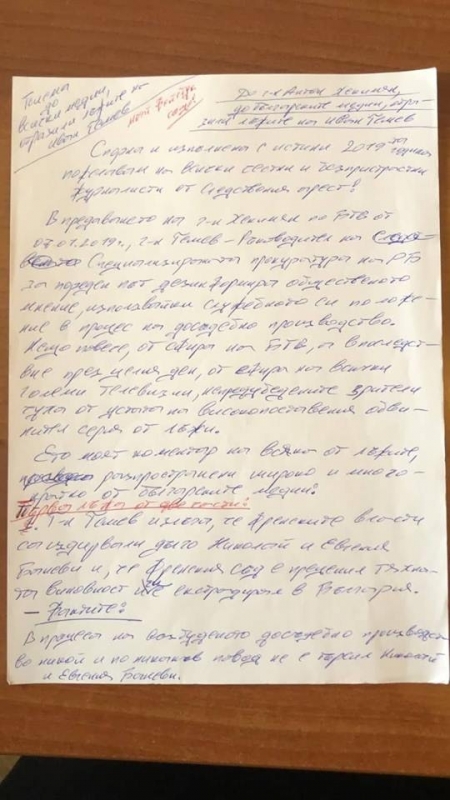 Гешева
до
всички медии,
отразили лъжите на
Иван Гешев
До г-н Антон Хекимян,
до българските медии, отра-
зили лъжите на Иван Гешев
Спорна и изпълнена с истини 2019-та
година
пожелавам на всички честни и безпристрастни
журналисти от Следствения арест!
В предаването на г-н Хекимян по БТВ от
07.01.2019г., г-н Гешев - Ръководител на
Специализираната прокуратура на РБ
за пореден път дезинформира общественото
мнение, използвайки служебното си положе-
ние в процес на досъдебно производство.
Нещо повече, от ефира на БТВ, а впоследст-
вие през целия ден, от ефира на всички
големи телевизии, непредубедените зрители
чуха от устата на високопоставения обви-
нител серия от лъжи.
Ето моят коментар на всяка от лъжите,
разпространени широко и много-
кратно от българските медии:
Първа лъжа от
1. г-н Гешев излъга, че френските власти
са издирвали дълго Николай и Евгения
Баневи и, че френския съд е преценил тяхна-
та виновност и ги е екстрадирал в България.
- Фактите:
В процеса на възбуденото досъдебно производст-
во никой и по никакъв повод не е търсил Николай
и Евгения Баневи.